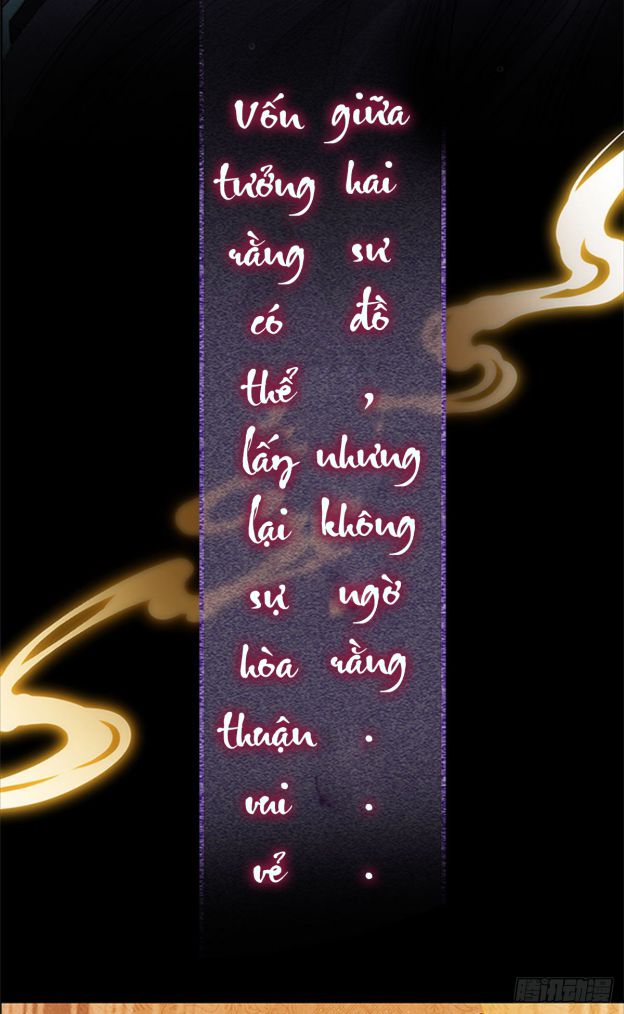 Vốn tưởng rằng có thể lấy lại sự hòa thuận vui vẻ
giữa hai sư đồ, nhưng không ngờ rằng...
腾讯动漫